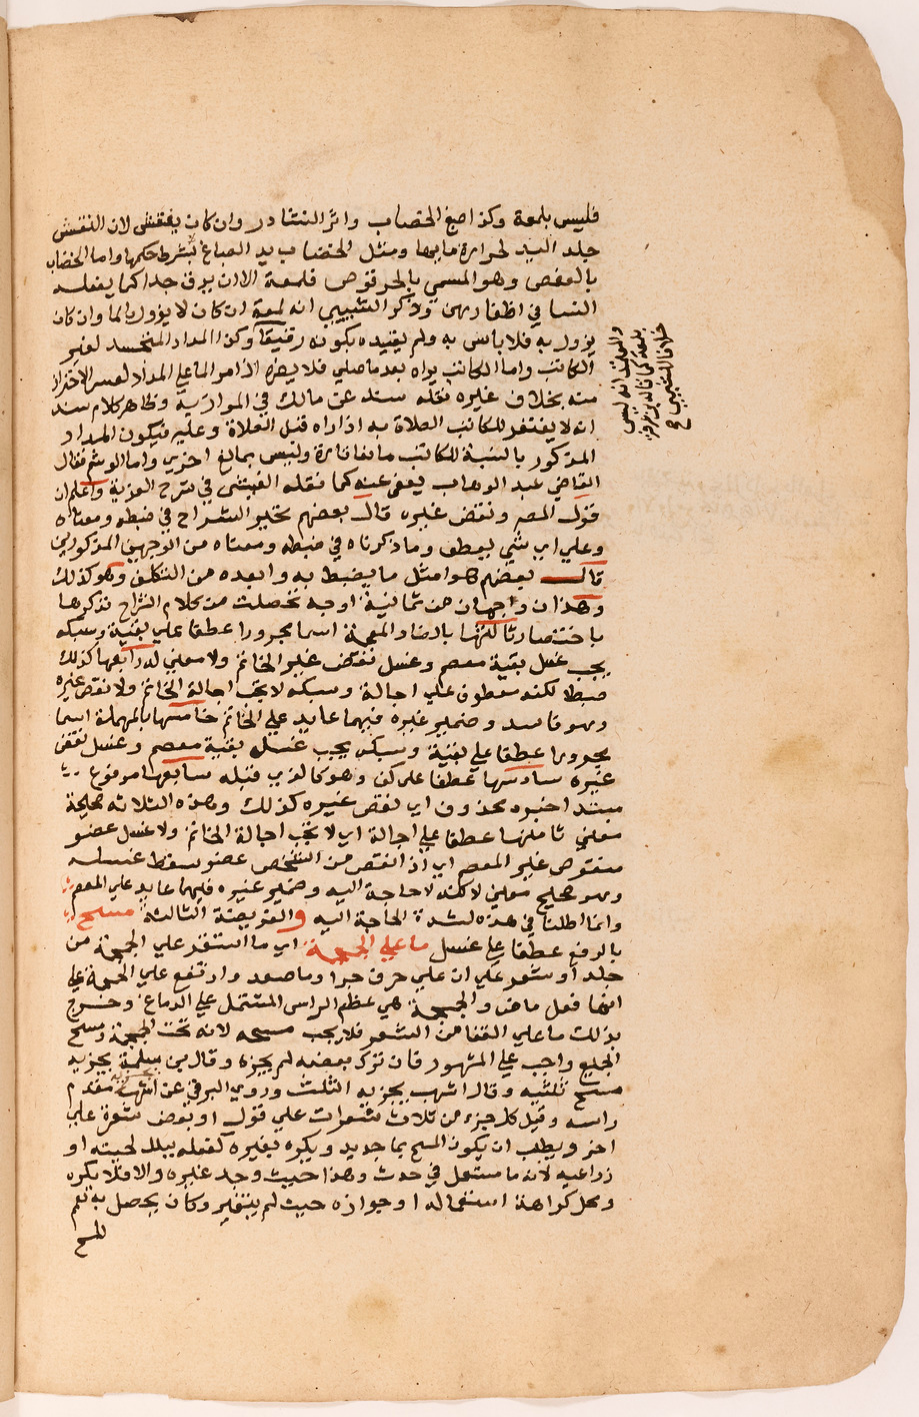 فليس بلمعة وكذا صبغ الخضاب واثر النشادر وان كان يقشر لان النقش
جلد اليد لحرارة مايهما ومثل الخضاب يد الصباغ بشرط حكمها واما الخضاب
بالعفص وهو المسمي بالحرقوص فلمعة الا ان يرق جدا كما يفعله
النسا في اظفارهن وذكر الشبيبي انه لمعة ان كان لا يزول بالما وان كان
يزول به فلا باس به ولم يقيده بكونه رقيقا وكذا المداد المتجسد لغير
الكاتب واما الكاتب يراه بعد ما صلي فلا يضره اذا مر الما علي المداد لعسر الاحتراز
منه بخلاف غيره نقله سند عن مالك في الموازية وظاهر كلام سند
انه لا يغتفر للكاتب الصلاة به اذا راه قبل الصلاة وعليه فيكون المداد
المذكور بالنسبة للكاتب مانعا تارة وليس بمانع اخري واما الوشم فقال
القاضي عبد الوهاب يعفي عنه كما نقله الفيشي في شرح العزية واعلم ان
قول المص ونقض غيره قال بعضهم تحير الشراح في ضبطه ومعناه
وعلي اي شي يعطف وما ذكرناه في ضبطه ومعناه من الوجهين المذكورين
قال بعضهم هو امثل ما يضبط به وابعده من التكلف وهو كذلك
وهذان وجهان من ثمانية اوجه تحصلت من كلام الشراح نذكرها
باختصار ثالثها بالضاد المعجمة اسما مجرورا عطفا علي بقية وسبكه
يجب غسل بقية معصم وغسل نقض غير الخاتم ولا معني له رابعها كذلك
ضبطا لكنه معطوف علي اجالة وسبكه لا تجب اجالة الخاتم ولا نقض غيره
وهو فاسد وضمير غيره فيهما عايد علي الخاتم خامسها بالمهملة اسما
مجرورا عطفا علي بقية وسبكه يجب غسل بقية معصم وغسل نقص
غيره سادسها عطفا علي كف وهو كالذي قبله سابعها مرفوع
مبتدا خبره محذوف اي نقص غيره كذلك وهذه الثلاثة صحيحة
معني ثامنها عطفا علي اجالة اي لا تجب اجالة الخاتم ولا غسل عضو
منقوص غير المعصم اي اذا نقص من الشخص عضو سقط غسله
وهو صحيح معني لاكنه لا حاجة اليه وضمير غيره فيهما عايد علي المعصم
وانما اطلنا في هذه لشدة الحاجة اليه و الفريضة الثالثة مسح
بالرفع عطفا علي غسل ما علي الجمجمة اي ما استقر علي الجمجمة من
جلد او شعر علي ان علي حرف جر او ما صعد وارتفع علي الجمجمة علي
انها فعل ماض والجمجمة هي عظم الراس المشتمل علي الدماغ وخرج
بذلك ما علي القفا من الشعر فلا يجب مسحه لانه تحت الجمجمة ومسح
الجميع واجب علي المشهور فان ترك بعضه لم يجزه وقال بن مسلمة يجزيه
مسح ثلثيه وقال اشهب يجزيه الثلث وروي البرقي عن اشهب مقدم
راسه وقيل كل جزء من ثلاث شعرات علي قول او بعض شعرة علي
اخر ويطلب ان يكون المسح بما جديد ويكره بغيره كفعله ببلل لحيته او
ذراعيه لانه ما مستعمل في حدث وهذا حيث وجد غيره والا فلا يكره
ومحل كراهة استعماله او جوازه حيث لم يتغير وكان يحصل به تعميم
المسح
والمعتمد انه ليس
بلمعة كما قاله بن مرزوق
خلافا للشبيبي صح